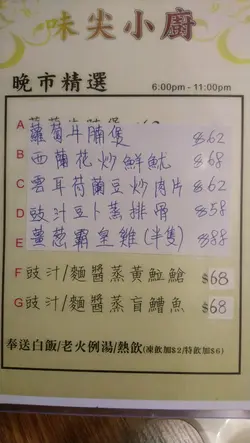 味尖小廚
晚市精選 6:00pm - 11:00pm
A 蘿蔔牛腩煲 $62
B 西蘭花炒鮮魷 $68
C 雲耳荷蘭豆炒肉片 $62
D 豉汁豆卜蒸排骨 $58
E 薑葱霸皇雞(半隻) $88
F 豉汁/麵醬蒸黃䱽鱠 $68
G 豉汁/麵醬蒸盲鰽魚 $68
奉送白飯/老火例湯/熱飲(凍飲加$2/特飲加$6)